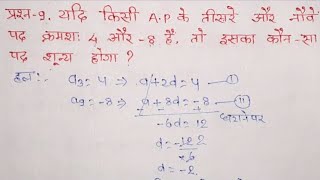 प्रश्न-9. यदि किसी A.P के तीसरे और नौवें
पद क्रमशः 4 और -8 हैं, तो इसका कौन-सा
पद शून्य होगा ?
हल:- a3=4 ⇒ a+2d=4 —(I)
a9=-8 ⇒ a+8d=-8 —(II)
-6d=12 घटाने पर
d=-12 2
6
d=-2